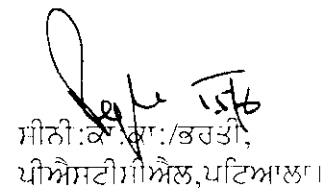 ਸੀਨੀ:ਕਾ:ਕਾ:/ਭਰਤੀ,
ਪੀਐਸਟੀਸੀਐਲ,ਪਟਿਆਲਾ।